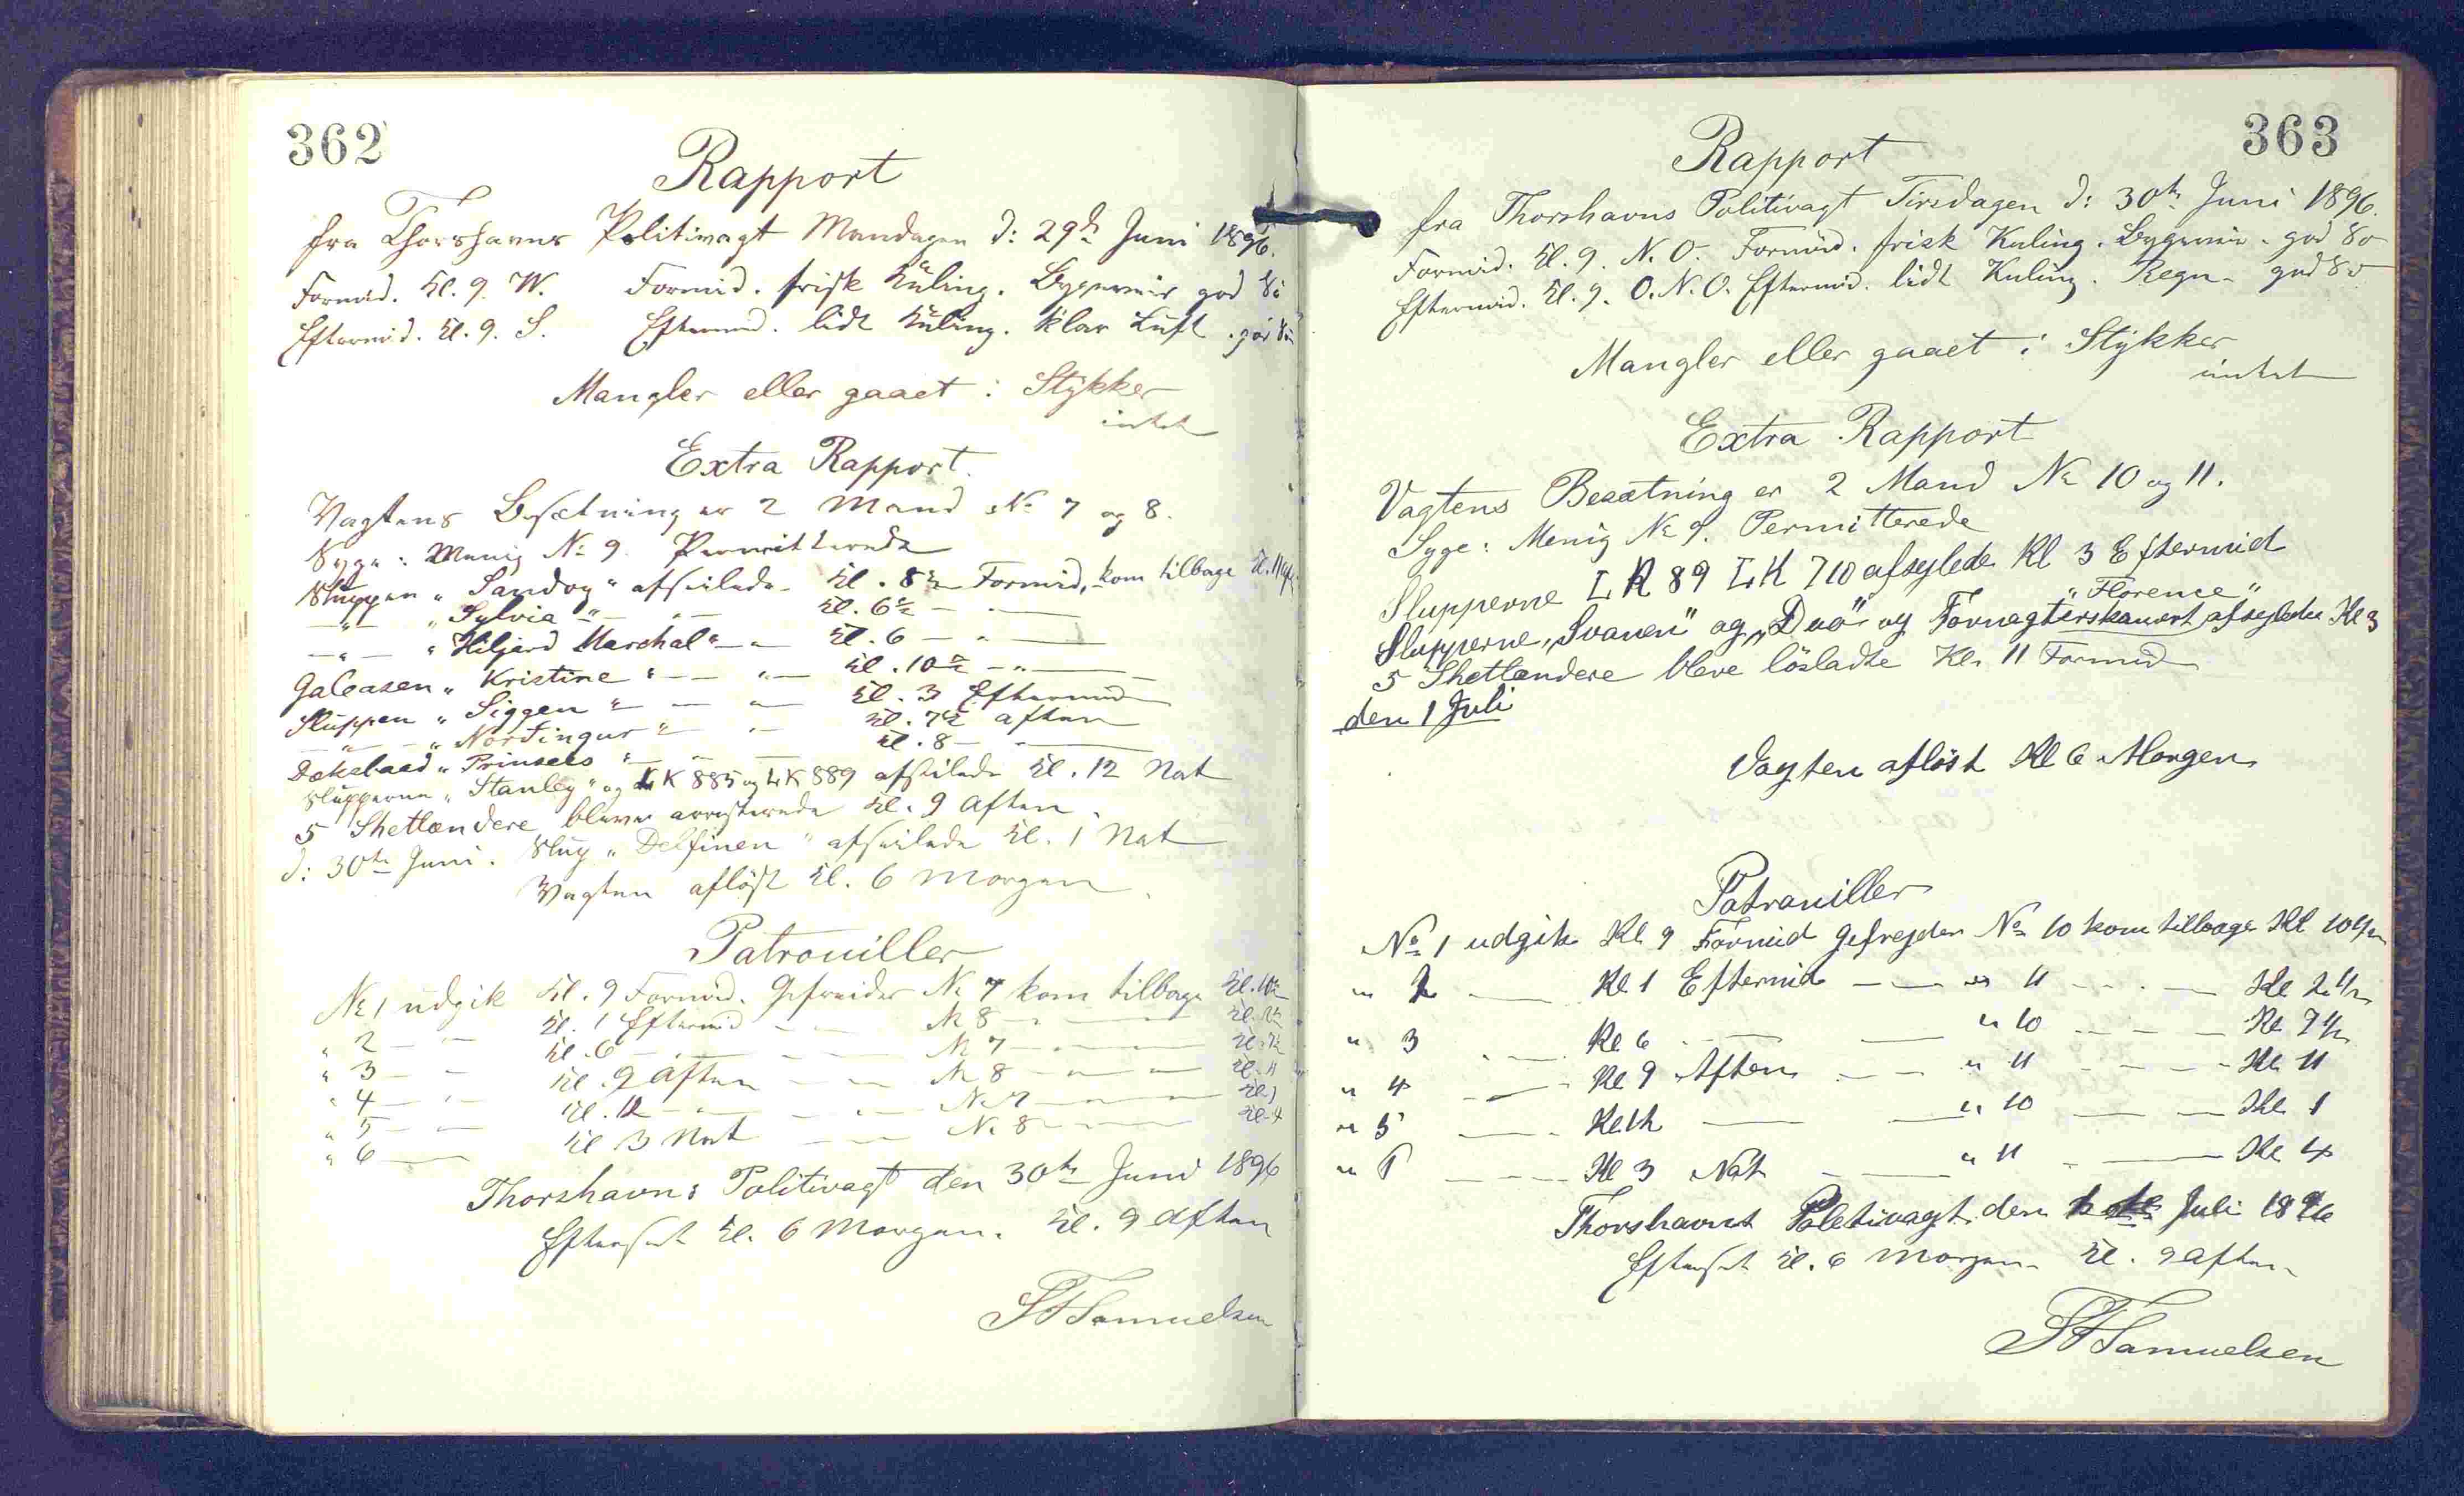 362
Rapport
fra Thorshavns Politivagt Mandagen d: 29de Juni 1896.
Formid. Kl. 9. W. Formid. frisk Kuling. Bygeveir god Sö
Eftermid. Kl. 9. S. Eftermid. lidt Kuling. Klar Luft. god Sö
Mangler eller gaaet i Stykker
intet
Extra Rapport.
Vagtens Besætning er 2 Mand No 7 og 8.
Syge: Menig No 9. Permitterede
Sluppen "Sandoy" afseilede Kl. 8½ Formid, kom tilbage Kl. 11
— " — "Sylvia" — " — Kl. 6½ — " —
— " — "Hiljard Marchal" — " — Kl. 6 — " —
Galeasen "Kristine" — " — Kl. 10½ — " —
Sluppen "Siggen" — " — Kl. 3 Eftermid
— " — "Nordingur" — " — Kl. 7½ aften
Deksbaad "Prinsess" — " — Kl. 8 — " —
Slupperne "Stanley" og LK 885 og LK 889 afseilede Kl. 12 Nat
5 Shetlændere bleve arresterede Kl. 9 Aften.
d: 30te Juni. Slup "Delfinen" afseilede Kl. 1 Nat
Vagten aflöst Kl. 6 Morgen.
Patrouiller
No 1 udgik Kl. 9 Formid. Gefreider No 7 kom tilbage Kl. 10½
" 2 — " — Kl. 1 Eftermid — " — No 8 — " — Kl. 2½
" 3 — " — Kl. 6 — " — No 7 — " — Kl. 7½
" 4 — " — Kl. 9 Aften — " — No 8 — " — Kl. 11
" 5 — " — Kl. 12 — " — No 7 — " — Kl. 1
" 6 — Kl 3 Nat — " — No 8 — " — Kl. 4
Thorshavns Politivagt den 30te Juni 1896
Efterset Kl. 6 Morgen. Kl. 9 Aften
Samuelsen
363
Rapport
fra Thorshavns Politivagt Tirsdagen d: 30te Juni 1896.
Formid. Kl. 9. N. O. Formid. frisk Kuling. Bygeveir. god Sö
Eftermid. Kl. 9. O. N. O. Eftermid. lidt Kuling. Regn. god Sö
Mangler eller gaaet i Stykker
intet
Extra Rapport
Vagtens Besætning er 2 Mand No 10 og 11.
Syge: Menig No 9. Permitterede
Slupperne LK 89 LK 710 afseglede Kl 3 Eftermid
"Florence"
Slupperne, "Svanen" og afseglede Kl 3
5 Shetlændere bleve lösladte Kl. 11 Formid
den 1 Juli
Vagten aflöst Kl 6 Morgen
Patrauiller
No 1 udgik Kl 9 Formid Gefrejder No 10 kom tilbage Kl 10½
" 2 — Kl 1 Eftermid — " 11 — Kl 2½
" 3 — Kl 6 — " 10 — Kl 7½
" 4 — Kl 9 Aften — " 11 — Kl 11
" 5 — Kl 12 — " 10 — Kl 1
" 6 — Kl 3 Nat — " 11 — Kl 4
Thorshavns Poletivagt den Juli 1896
Efterset Kl. 6 Morgen Kl. 9 aften
Samuelsen